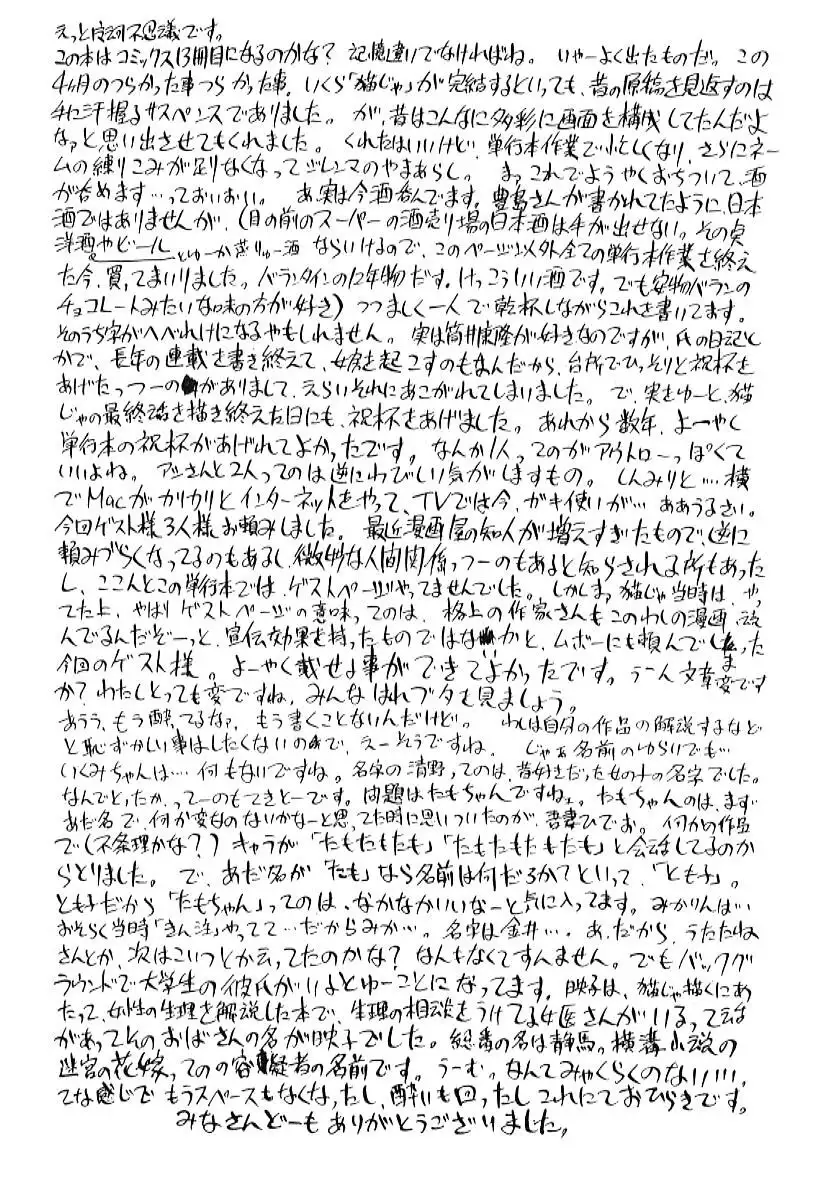 えっと唐沢不思議です。
この本はコミックス13冊目になるのかな? 記憶違いでなければね。 いやーよく出たものだ。 この
4ヶ月のつらかった事つらかった事。いくら「猫じゃ」が完結するといっても、昔の原稿を見返すのは
手に汗握るサスペンスでありました。 が、昔はこんなに多彩に画面を構成してたんだよ
なァと思い出させてもくれました。 くれたはいいけど、単行本作業で忙しくなり、さらにネー
ムの練りこみが足りなくなってジレンマのやまあらし。 まっこれでようやくおちついて、酒
が呑めます…っておいおい。 あ、実は今酒呑んでます。豊島さんが書かれてたように、日本
酒ではありませんが、(目の前のスーパーの酒売り場の日本酒は手が出せない。その点
洋酒やビールとゆーか蒸りゅー酒ならいけるので、このページ以外全ての単行本作業を終え
た今、買ってまいりました。バランタインの12年物だす。けっこういい酒です。でも安物バランの
チョコレートみたいな味の方が好き) つつましく一人で乾杯しながらこれを書いてます。
そのうち字がへべれけになるやもしれません。 実は筒井康隆が好きなのですが、氏の日記と
かで、長年の連載を書き終えて、女房を起こすのもなんだから、台所でひっそりと祝杯を
あげたっつーのがありまして、えらいそれにあこがれてしまいました。 で、実をゆーと、猫
じゃの最終話を描き終えた日にも、祝杯をあげました。 あれから数年、よーやく
単行本の祝杯があげれてよかったです。 なんか1人ってのがアウトローっぽくて
いいよね。 アシさんと2人ってのは逆にわびしい気がしますもの。 しんみりと…横
でMacがカリカリとインターネットをやって、TVでは今、ガキ使いが… ああうるさい。
今回ゲスト様3人様お頼みしました。 最近漫画屋の知人が増えすぎたもので、逆に
頼みづらくなってるのもあるし、微妙な人間関係っつーのもあると知らされる所もあった
し、ここんとこの単行本では、ゲストページやってませんでした。しかしまっ猫じゃ当時は、やっ
てた上、やはりゲストページの意味ってのは、格上の作家さんもこのわしの漫画、読
んでるんだぞーっと、宣伝効果を持ったものではないかと、ムボーにも頼んでしまった
今回のゲスト様。 よーやく載せる事ができてよかったです。 うーん文章変です
か? わたしとっても変ですね、みんなはれブタを見ましょう。
あうう、もう酔ってるなァ、もう書くことないんだけど。 わしは自分の作品の解説するなど
と恥ずかしい事はしたくないので、えーそうですね。 じゃぁ名前のゆらいでも…
いくみちゃんは… 何もないですね。名字の清野ってのは、昔好きだった女の子の名字でした。
なんでとったか、ってーのもてきとーです。問題はたもちゃんですねェ。 たもちゃんのは、まず
あだ名で、何か変なのないかなーと思ってた時に思いついたのが、吾妻ひでお。 何かの作品
で(不条理かな?) キャラが「たもたもたも」「たもたもたもたも」と会話してるのか
らとりました。 で、あだ名が「たも」なら名前は何だろか?といって、「とも子」。
とも子だから「たもちゃん」ってのは、なかなかいいなーと気に入ってます。みかりんは…
おそらく当時「きん注」やってて…だからみか…。名字は金井…。あ、だから、うたたね
さんとか、次はこいつとか云ってたのかな? なんもなくてすんません。でもバックグ
ラウンドで大学生の彼氏がいるとゆーことになってます。映子は、猫じゃ描くにあ
たって、女性の生理を解説した本で、生理の相談をうけてる女医さんがいるって話
があってそのおばさんの名が映子でした。総番の名は静馬。横溝小説の
迷宮の花嫁ってのの容疑者の名前です。うーむ。なんてみゃくらくのない!!!、
てな感じで もうスペースもなくなったし、酔いも回ったしこれにておひらきです。
みなさんどーも ありがとうございました。